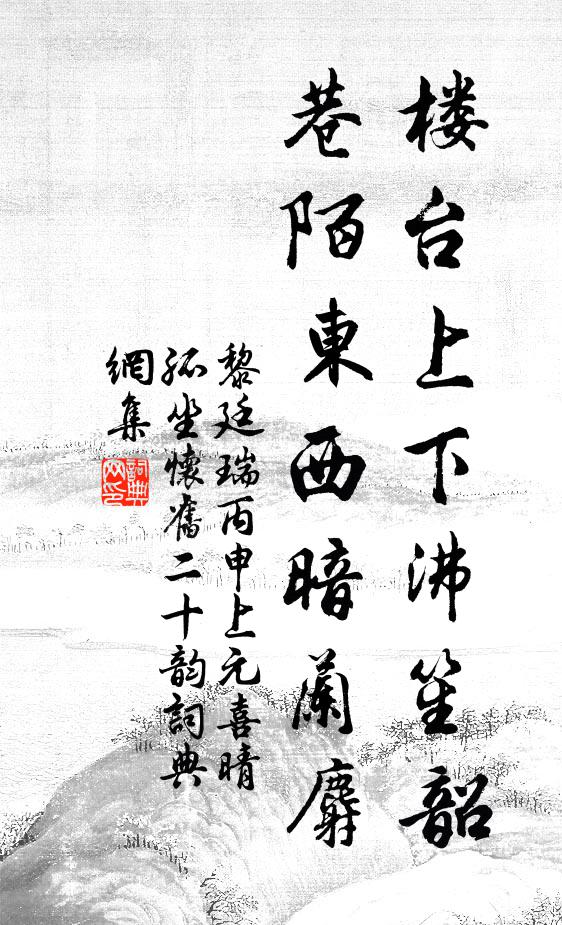 楼台上下沸笙韶
巷陌東西暗蘭麝
黎廷瑞丙申上元喜晴
孤坐懷舊二十韵詞典
網集
詞典
网印